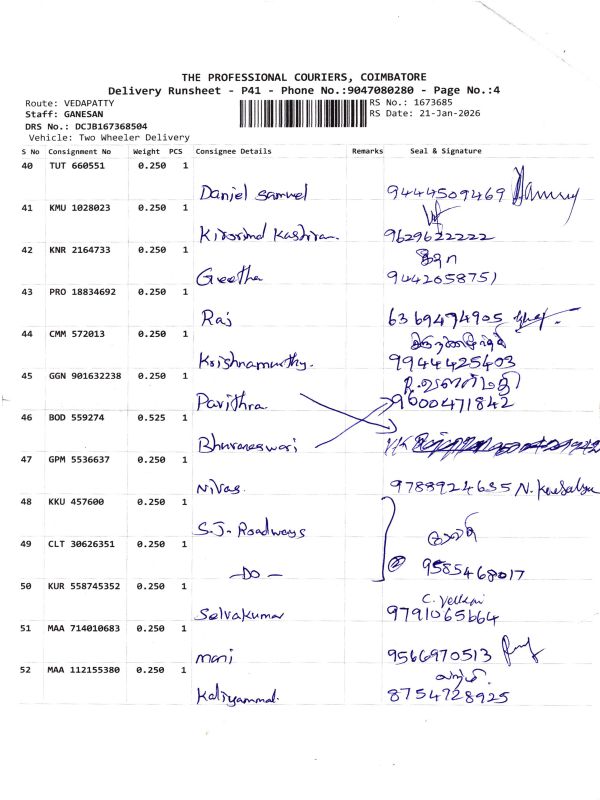 THE PROFESSIONAL COURIERS, COIMBATORE
Delivery Runsheet - P41 - Phone No.:9047080280 - Page No.:4
Route: VEDAPATTY
RS No.: 1673685
Staff: GANESAN
RS Date: 21-Jan-2026
DRS No.: DCJB167368504
Vehicle: Two Wheeler Delivery
S No Consignment No Weight PCS Consignee Details Remarks Seal & Signature
40 TUT 660551 0.250 1
Daniel Samuel 9444509469
41 KMU 1028023 0.250 1
9629622222
42 KNR 2164733 0.250 1
Geetha 9442058751
43 PRO 18834692 0.250 1
Raj 6369474905
44 CMM 572013 0.250 1
Krishnamurthy. 9944425403
45 GGN 901632238 0.250 1
Pavithra 9600471842
46 BOD 559274 0.525 1
Bhuvaneswari
47 GPM 5536637 0.250 1
Nivas. 9788924635
48 KKU 457600 0.250 1
S.J. Roadways
49 CLT 30626351 0.250 1
-DO- 9585468017
50 KUR 558745352 0.250 1
Selvakumar 9791065664
51 MAA 714010683 0.250 1
mani 9566970513
52 MAA 112155380 0.250 1
Kaliyammal. 8754728925